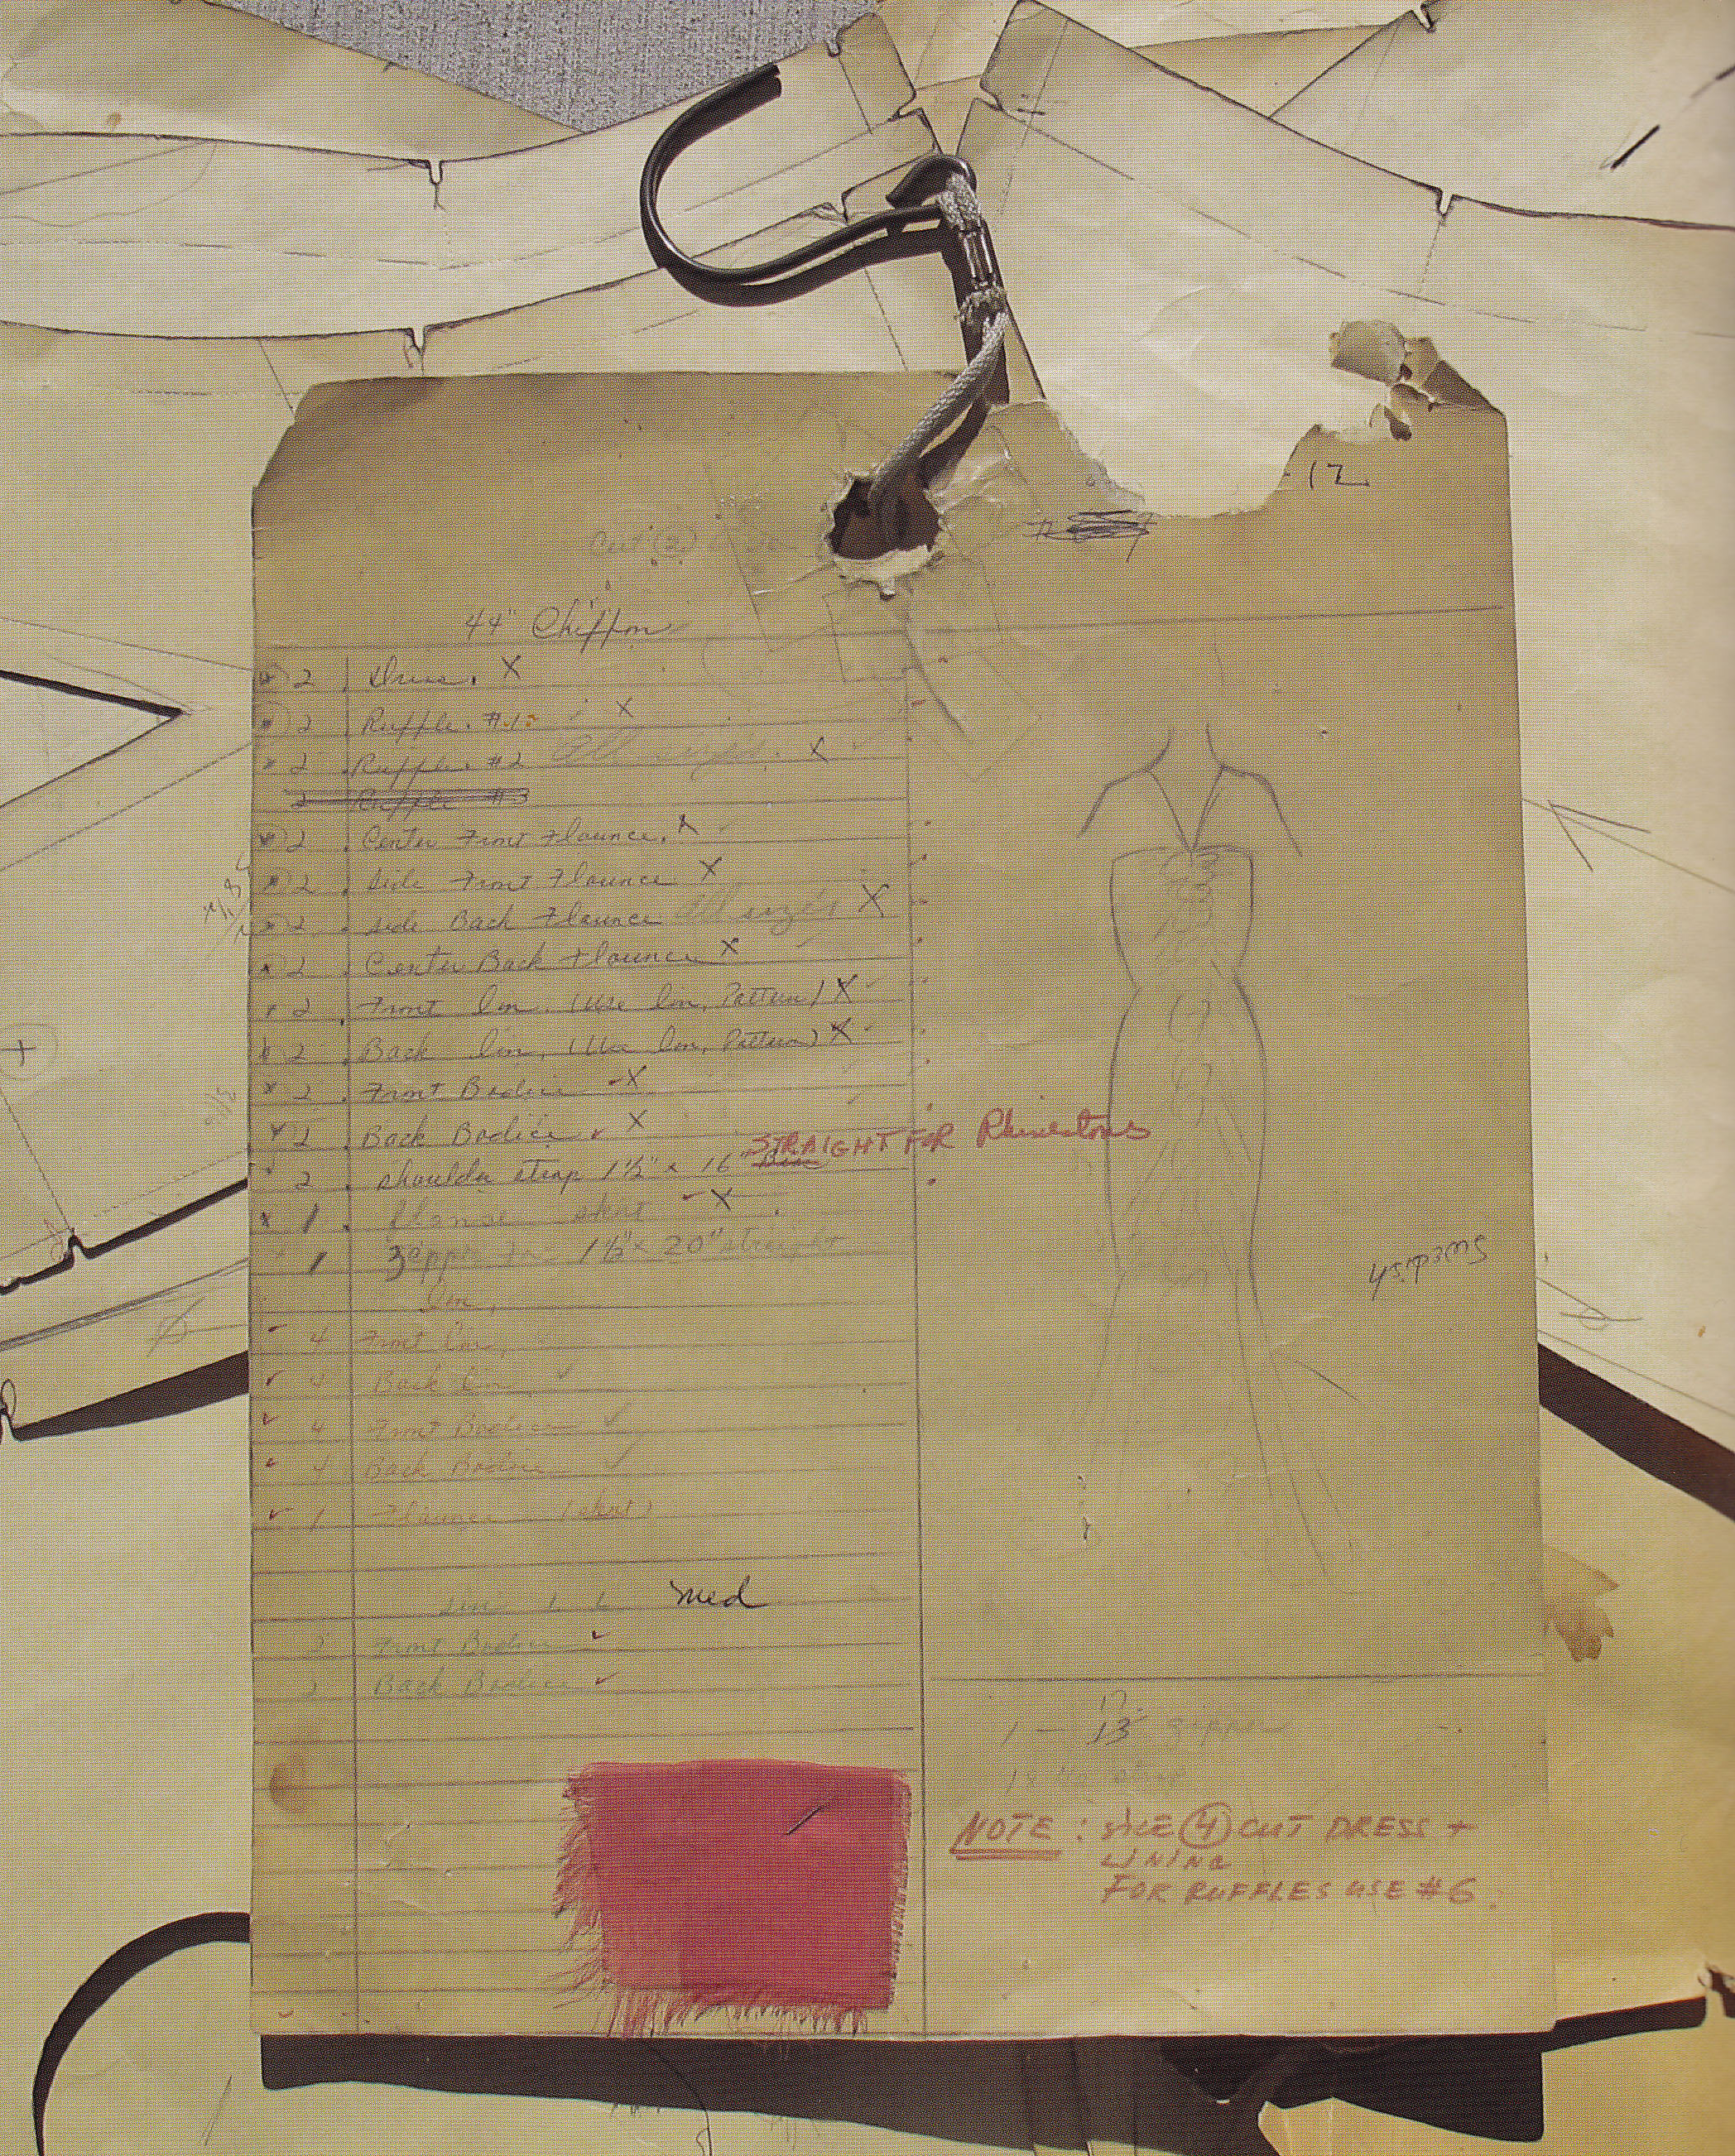 -12
Cut (2)
44" Chiffon
2 Dress. X
2 Ruffle. #1 X
2 Ruffle #2 All sizes. X
2 Ruffle #3
2 Center Front Flounce. X
2 Side Front Flounce X
2 Side Back Flounce All sizes X
2 Center Back Flounce X
2 Front lin. (Use lin. Pattern) X
2 Back lin. (Use lin. Pattern) X
2 Front Bodice X
2 Back Bodice X
STRAIGHT FOR Rhinestones
2 shoulder strap 1½" x 16"
1 skirt X
1 1½" x 20" straight
lin.
4 Front lin.
4 Back lin.
4 Front Bodice
4 Back Bodice
1 Flounce (skirt)
med
2 Front Bodice
2 Back Bodice
Swedish
1 — 13" zipper
NOTE: SIZE 4 CUT DRESS +
LINING
FOR RUFFLES USE #6.